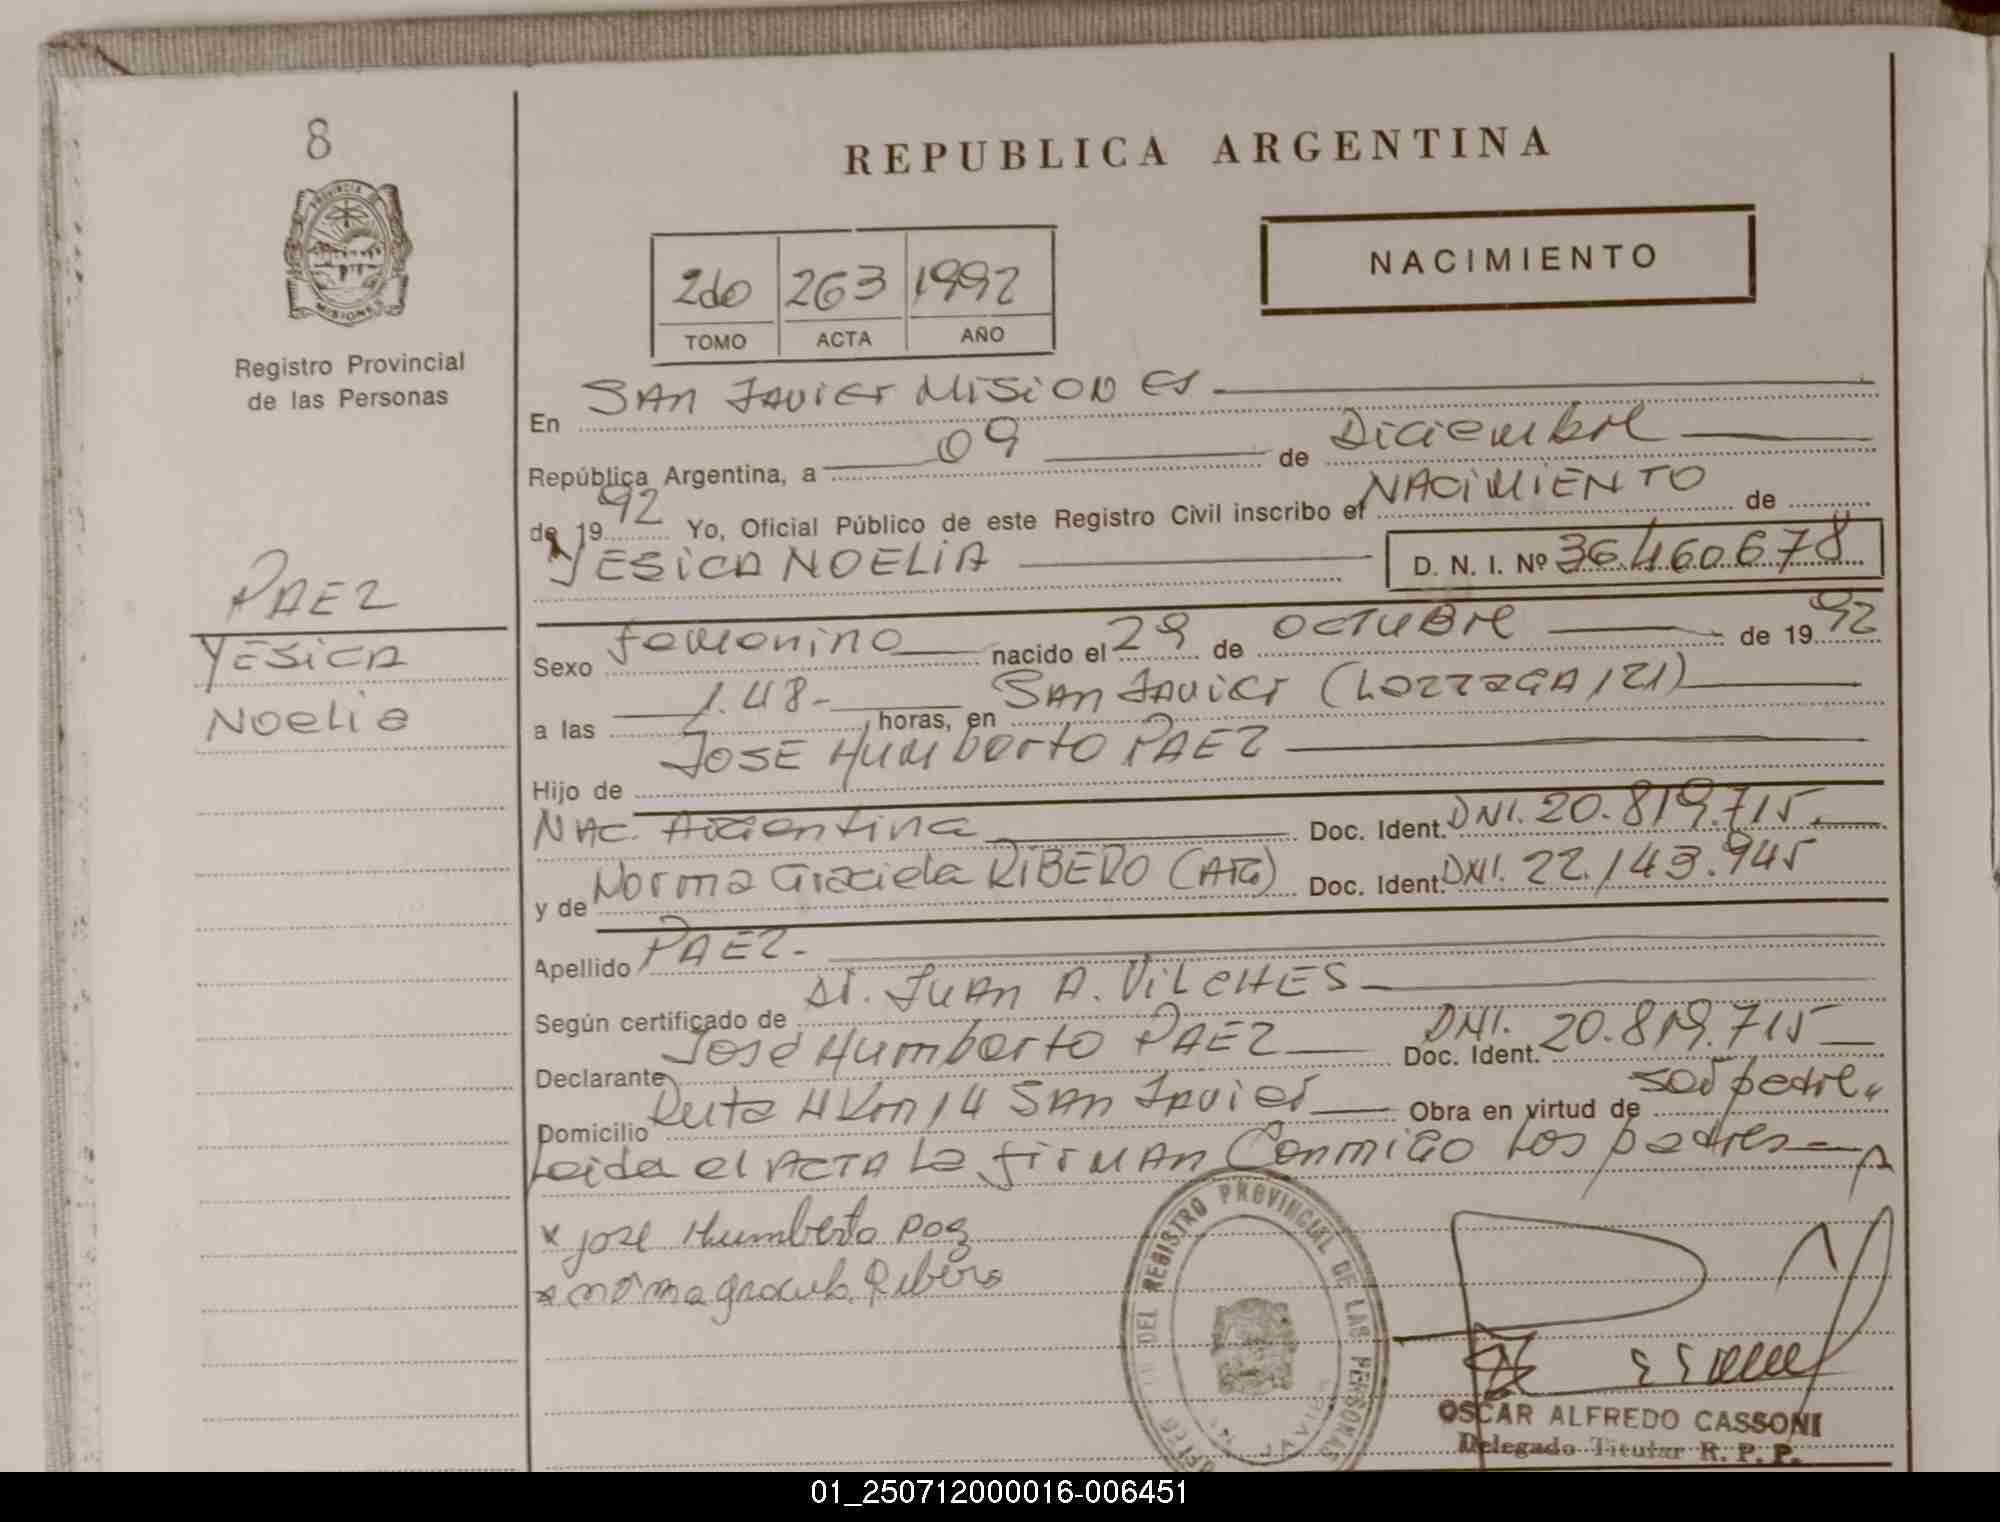 8
PROVINCIA DE
MISIONES
Registro Provincial
de las Personas
PAEZ
YESICA
Noelia
REPUBLICA ARGENTINA
2do 263 1992
TOMO ACTA AÑO
NACIMIENTO
En SAN JAVIER MISIONES
República Argentina, a 09 de Diciembre
de 1992 Yo, Oficial Público de este Registro Civil inscribo el NACIMIENTO de
YESICA NOELIA D. N. I. Nº 36.460.678
Sexo femenino nacido el 29 de OCTUBRE de 1992
a las 1.48- horas, en SAN JAVIER (LOZZAGA 121)
Hijo de JOSE Humberto PAEZ
NAC. Argentina Doc. Ident. DNI. 20.819.715.
y de Norma Graciela RIBERO (ARG) Doc. Ident. DNI. 22.143.945
Apellido PAEZ-
Según certificado de Dr. JUAN A. VILCHES
Declarante José Humberto PAEZ Doc. Ident. DNI. 20.819.715
Domicilio Ruta 4 Km 14 SAN JAVIER Obra en virtud de ser padre
Leida el ACTA La firman Conmigo Los padres
x jose Humberto paz
x norma graciela Ribero
DEL REGISTRO PROVINCIAL DE LAS PERSONAS
JAVIER
OSCAR ALFREDO CASSONI
Delegado Titular R. P. P.
01_250712000016-006451